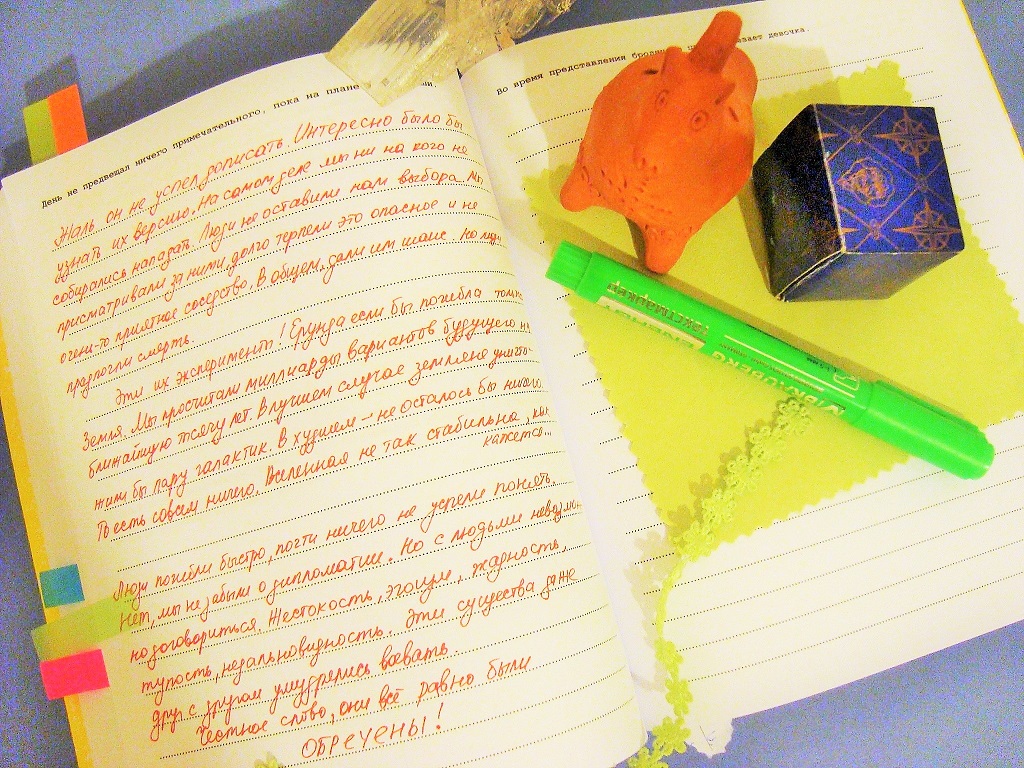 День не предвещал ничего примечательного, пока на плане
Жаль он не успел дописать. Интересно было бы
узнать их версию. На самом деле мы ни на кого не
собирались нападать. Люди не оставили нам выбора. Мы
присматривали за ними, долго терпели это опасное и не
очень-то приятное соседство. В общем, дали им шанс. Но
предпочли смерть.
Эти их эксперименты! Ерунда если бы погибла только
Земля. Мы просчитали миллиарды вариантов будущего на
ближайшую тысячу лет. В лучшем случае земляне уничто-
жили бы пару галактик. В худшем – не осталось бы ничего.
То есть совсем ничего. Вселенная не так стабильна, как
кажется...
Люди погибли быстро, почти ничего не успели понять.
Нет, мы не забыли о дипломатии. Но с людьми невозможно
договориться. Жестокость, эгоизм, жадность,
тупость, недальновидность. Эти существа даже
друг с другом умудрялись воевать.
Честное слово, они всё равно были
ОБРЕЧЕНЫ!
Во время представления девочка.
текстмаркер
VISION